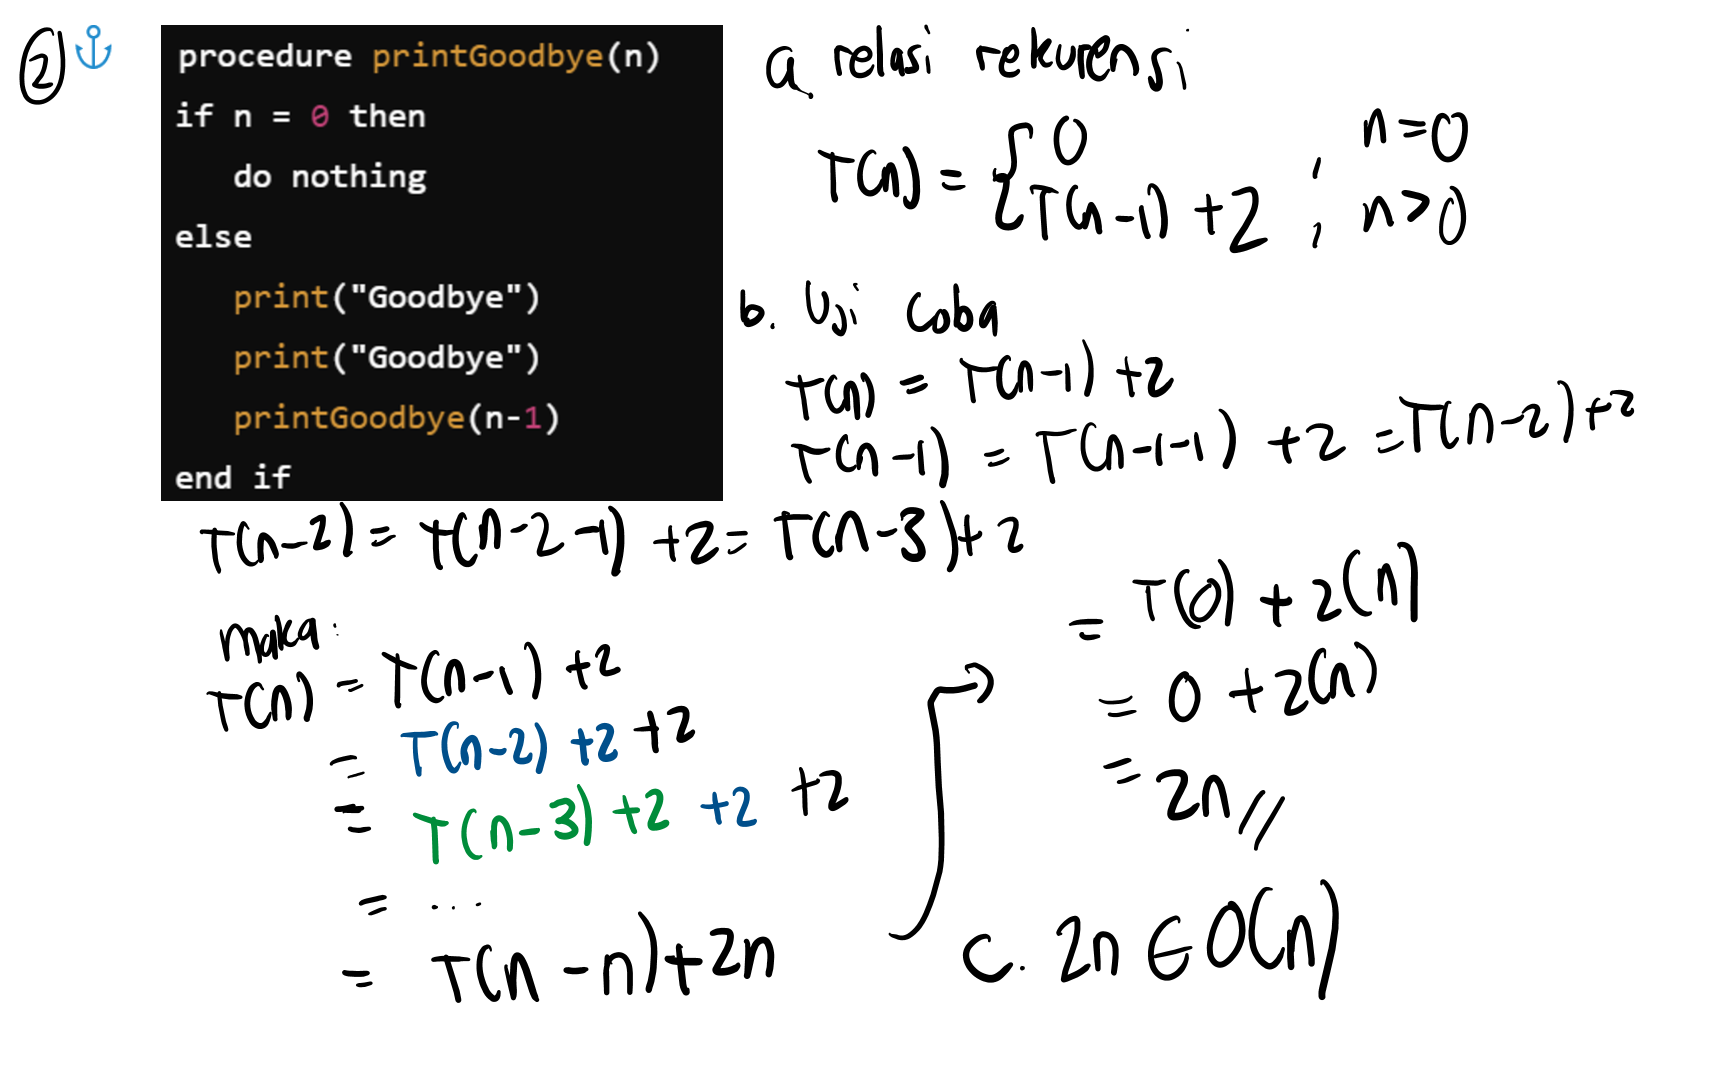 2
procedure printGoodbye(n)
if n = 0 then
do nothing
else
print("Goodbye")
print("Goodbye")
printGoodbye(n-1)
end if
a. relasi rekurensi
T(n) = { 0 ; n=0
T(n-1) +2 ; n>0
b. Uji coba
T(n) = T(n-1) +2
T(n-1) = T(n-1-1) +2 = T(n-2)+2
T(n-2) = T(n-2-1) +2 = T(n-3)+2
maka:
T(n) = T(n-1) +2
= T(n-2) +2 +2
= T(n-3) +2 +2 +2
= ...
= T(n-n)+2n
= T(0) + 2(n)
= 0 +2(n)
= 2n //
c. 2n ∈ O(n)